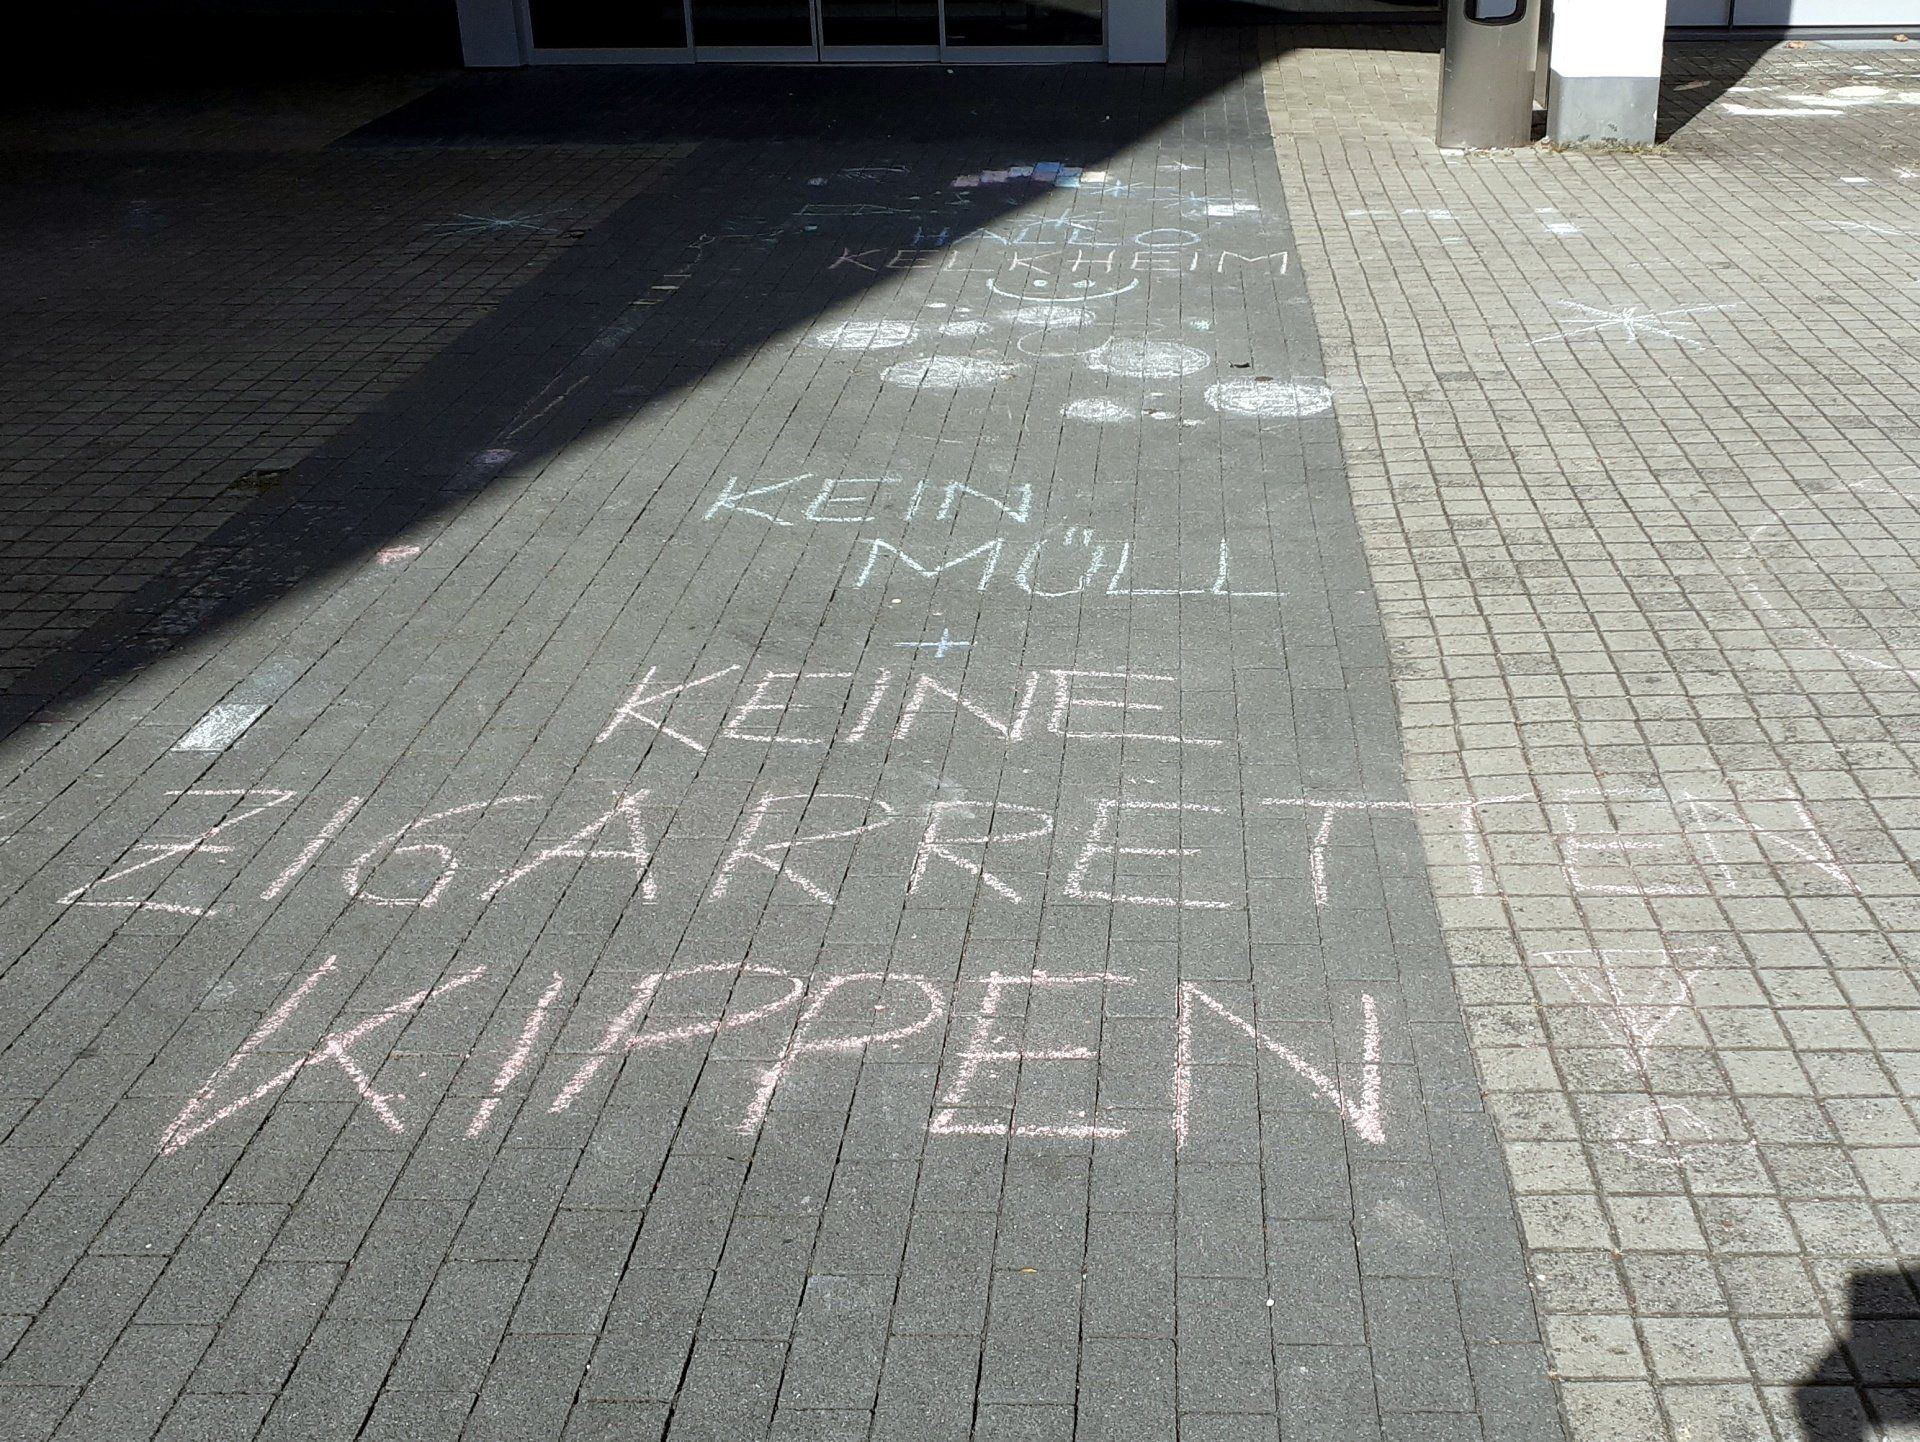 HALLO
KELKHEIM
KEIN
MÜLL
+
KEINE
ZIGARRETTEN
KIPPEN